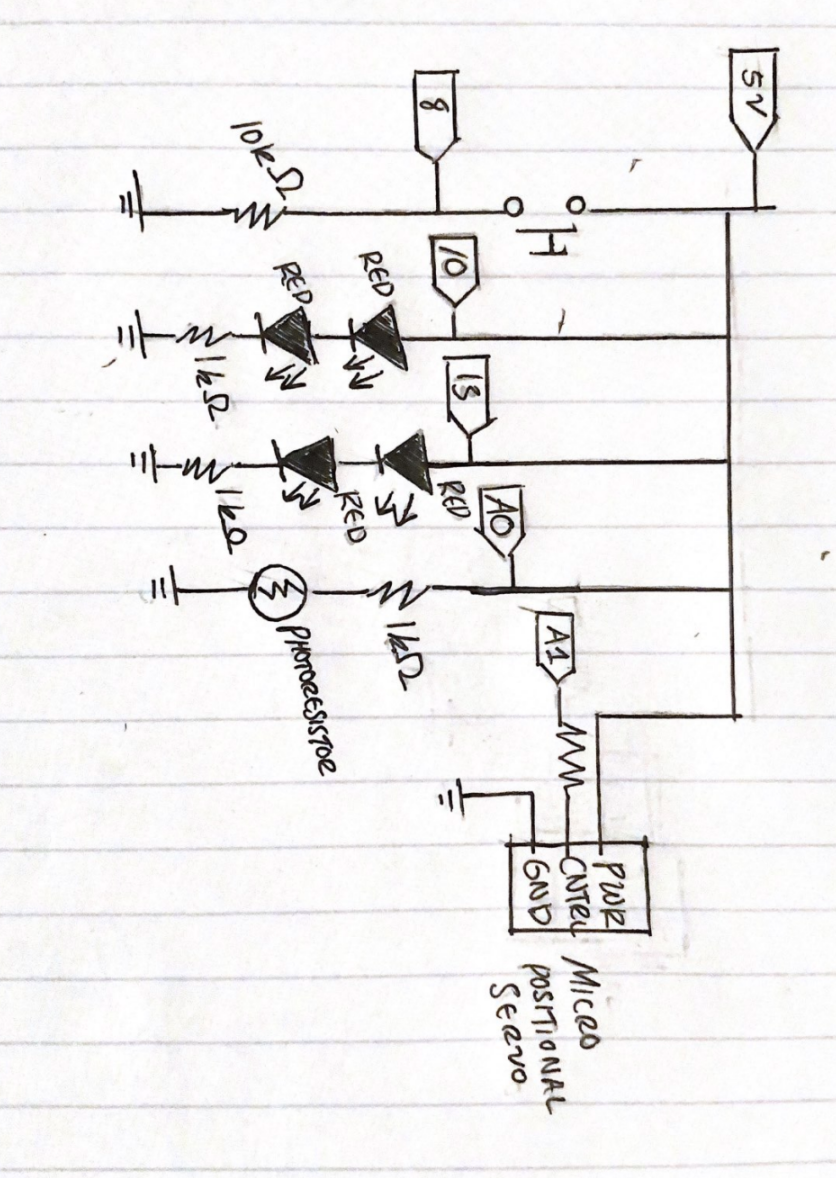 5V
8
10
13
A0
A1
PWR
CNTRL
GND
MICRO
POSITIONAL
SERVO
RED
RED
RED
RED
1kΩ
PHOTORESISTOR
10kΩ
1kΩ
1kΩ